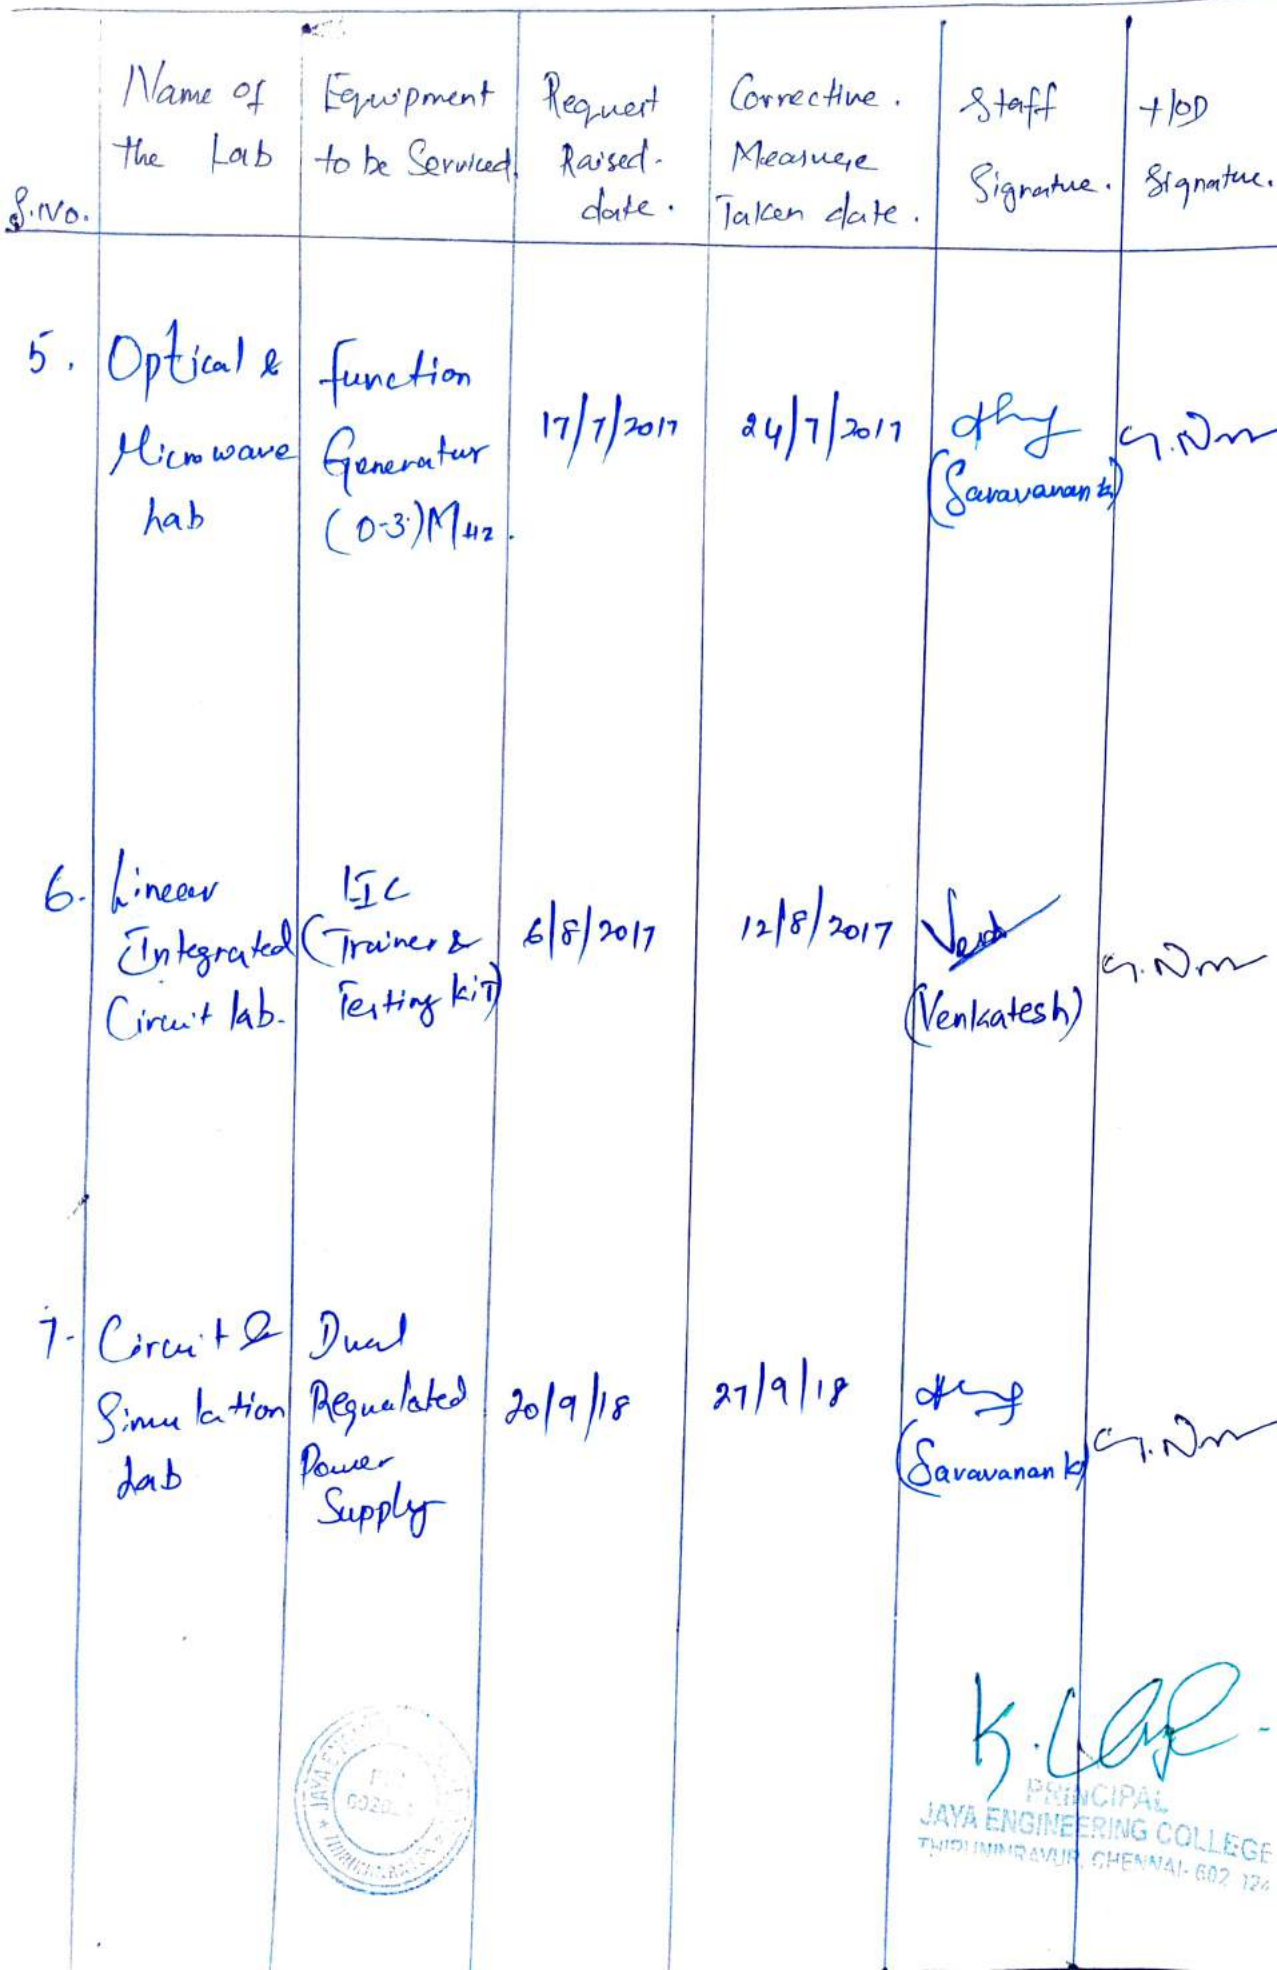 S.No.
Name of
the Lab
Equipment
to be Serviced
Request
Raised.
date.
Corrective.
Measure
Taken date.
Staff
Signature.
HOD
Signature.
5.
Optical &
Microwave
Lab
function
Generator
(0-3)MHz.
17/7/2017
24/7/2017
(Saravanan K)
6.
Linear
Integrated
Circuit lab.
LIC
(Trainer &
Testing kit)
6/8/2017
12/8/2017
(Venkatesh)
7.
Circuit &
Simulation
Lab
Dual
Regualated
Power
Supply
20/9/18
27/9/18
(Saravanan K)
PRINCIPAL
JAYA ENGINEERING COLLEGE
THIRUNINRAVUR, CHENNAI- 602 124